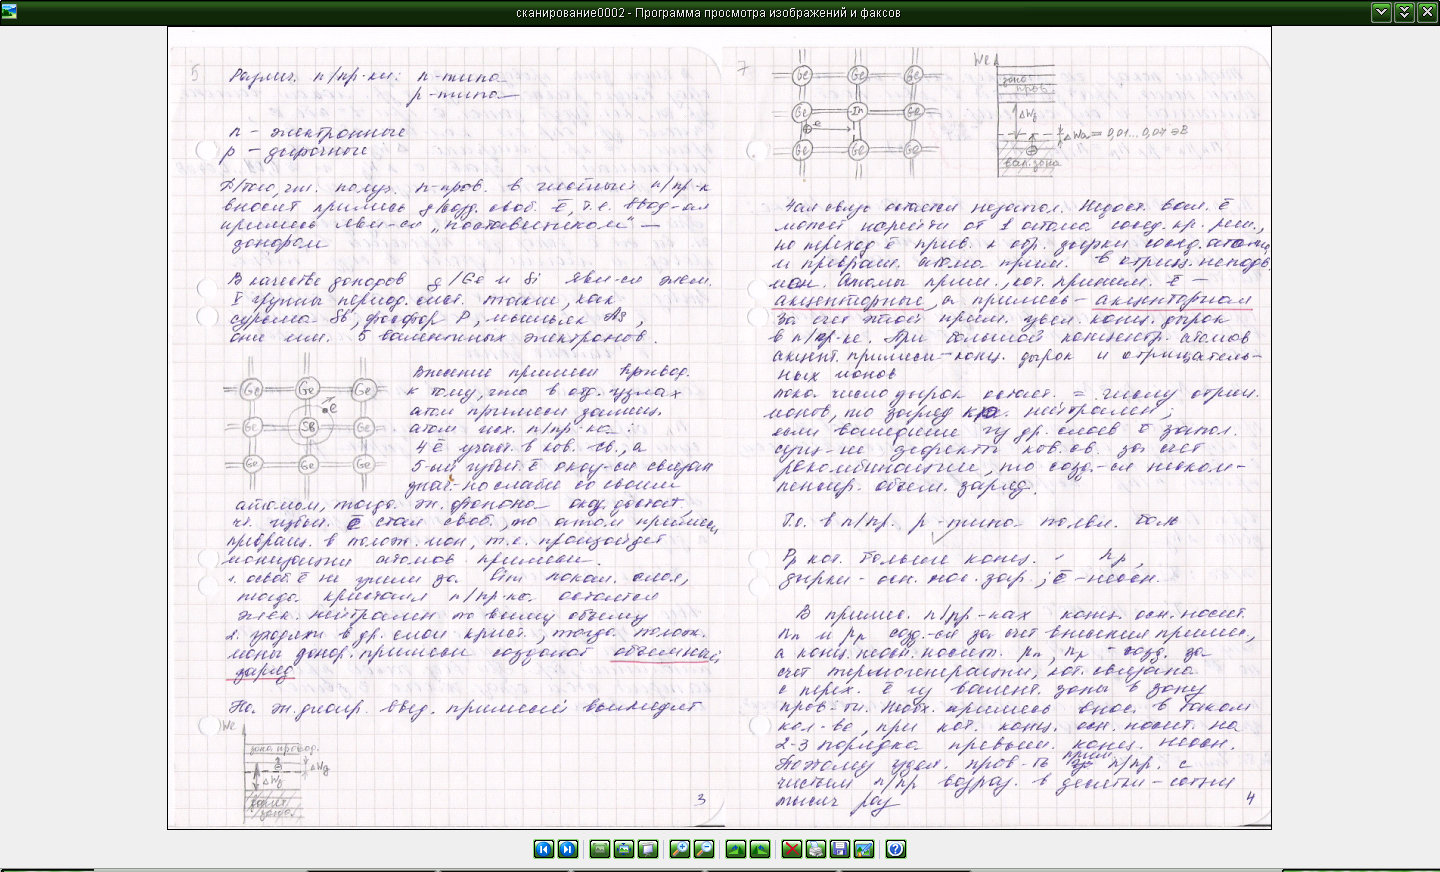 сканирование0002 - Программа просмотра изображений и факсов
5
Различ. п/пр-ки: n-типа
p-типа
n - электронные
p - дырочные
Д/того, чт. получ. n-пров. в чистый п/пр-к
вносит примесь д/созд. своб. ē, т.е. ввод-ая
примесь явл-ся „поставщиком" —
донором
В качестве доноров д/Ge и Si явл-ся элем.
V группы период. сист. такие, как
сурьма Sb, фосфор P, мышьяк As,
они им. 5 валентных электронов.
Ge Ge Ge
Ge Sb Ge
Ge Ge Ge
e
Внесение примеси привод.
к тому, что в отд. узлах
атом примеси замещ.
атом исх. п/пр-ка:
4 ē участ. в ков. св., а
5-ый избыт. ē оказ-ся связан
знач-но слабо со своим
атомом, тогда эн. фонона оказ. достат,
чт. избыт. ē стал своб., то атом примеси
превращ. в полож. ион, т.е. произойдет
ионизация атомов примеси.
1. если ē не ушли за покал. слоя,
тогда кристалл п/пр-ка остается
элек. нейтрален по всему объему
2. уходят в др. слои крист., тогда полож.
ионы донор. примеси создают объемный
заряд
На эн. диагр. введ. примесей выглядит
We
зона провод.
ΔWд
ΔWз
валент.
зона
3
7
Ge Ge Ge
Ge In Ge
Ge Ge Ge
e
We
зона
пров.
ΔWз
ΔWа = 0,01...0,07 эВ
вал. зона
4ая связь остается незапол. Недост. вал. ē
может перейти от 1 атома сосед. кр. реш.,
но переход ē прив. к обр. дырки сосед. атома
и превращ. атома прим. в отриц. неподв.
ион. Атомы прим., кот. приним. ē —
акцепторные, а примесь - акцепторная
За счет этой прим. увел. конц. дырок
в п/пр-ке. При большой концентр. атомов
акцепт. примеси - конц. дырок и отрицатель-
ных ионов
пока число дырок остает. = числу отриц.
ионов, то заряд кр. нейтрален;
если вошедшие из др. слоев ē запол.
сущ-ие дефекты ков. св. за счет
рекомбинации, то созд-ся неском-
пенсир. объем. заряд.
Т.о. в п/пр. p-типа появл. боль
Pp кот. больше конц. - np,
дырки - осн. нос. зар.; ē - неосн.
В примес. п/пр-ках конц. осн. носит.
nn и pp созд-ся за счет внесения примеси,
а конц. неосн. носит. pn, np - созд. за
счет термогенерации, кот. связана
с перех. ē из валент. зоны в зону
пров-ти. Необх. примесь внос. в таком
кол-ве, при кот. конц. осн. носит. на
2-3 порядка превыш. конц. неосн.
Поэтому удел. пров-ть прим. п/пр. с
чистым п/пр возраст. в десятки - сотни
тысяч раз
4